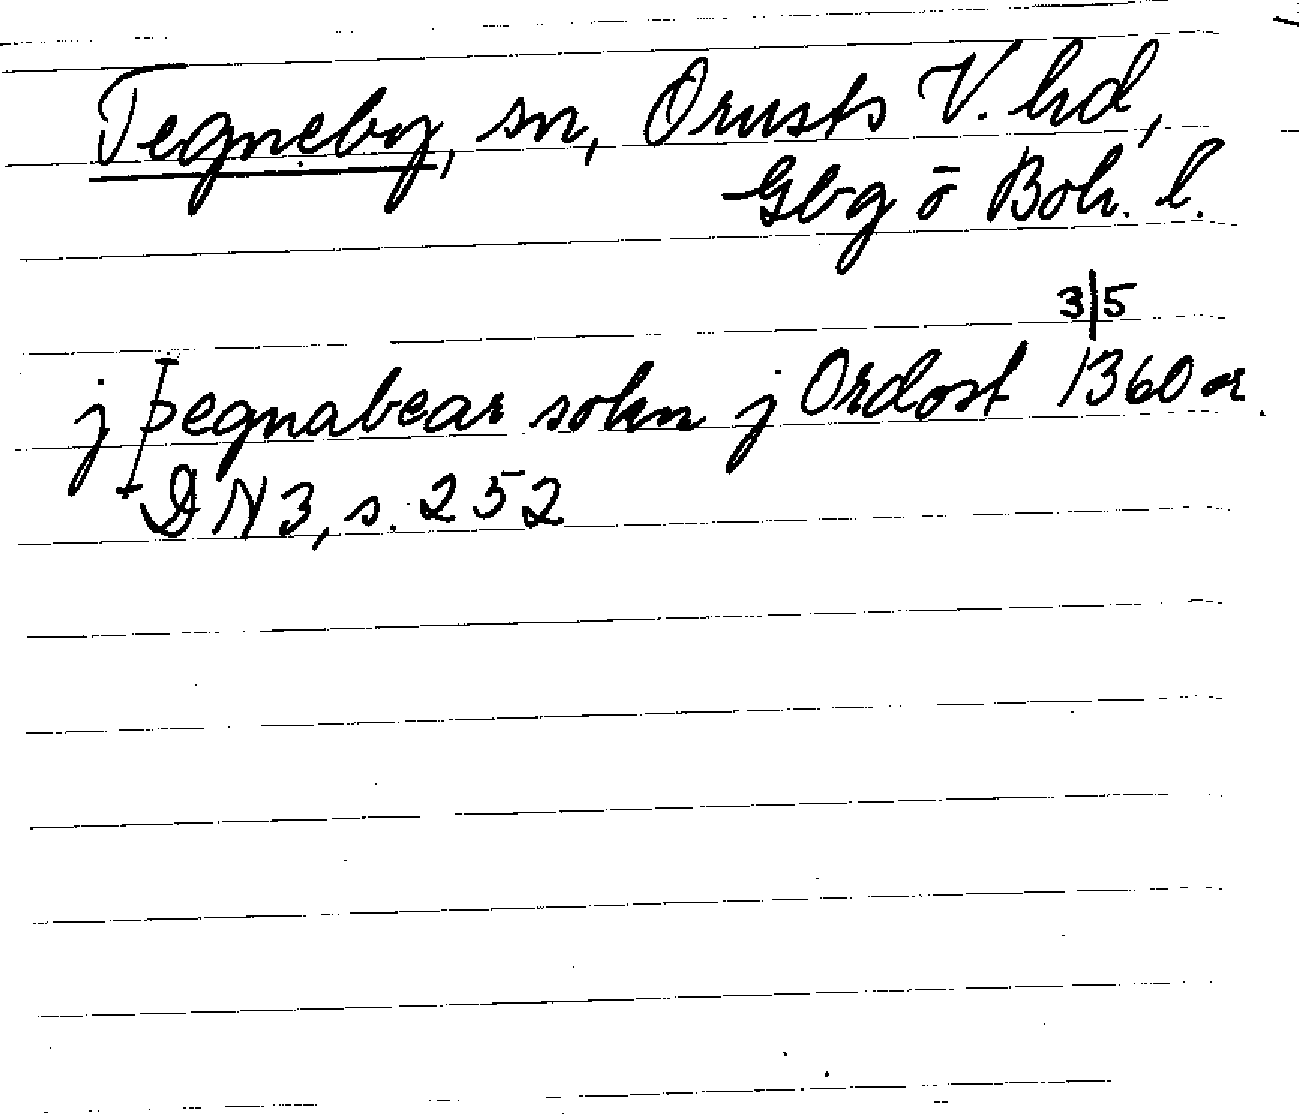 Tegneby, sn, Orusts V. hd,
Gbg o Boh. l.
3/5
j þegnabear sokn j Ordost 1360 or.
DN 3, s. 252